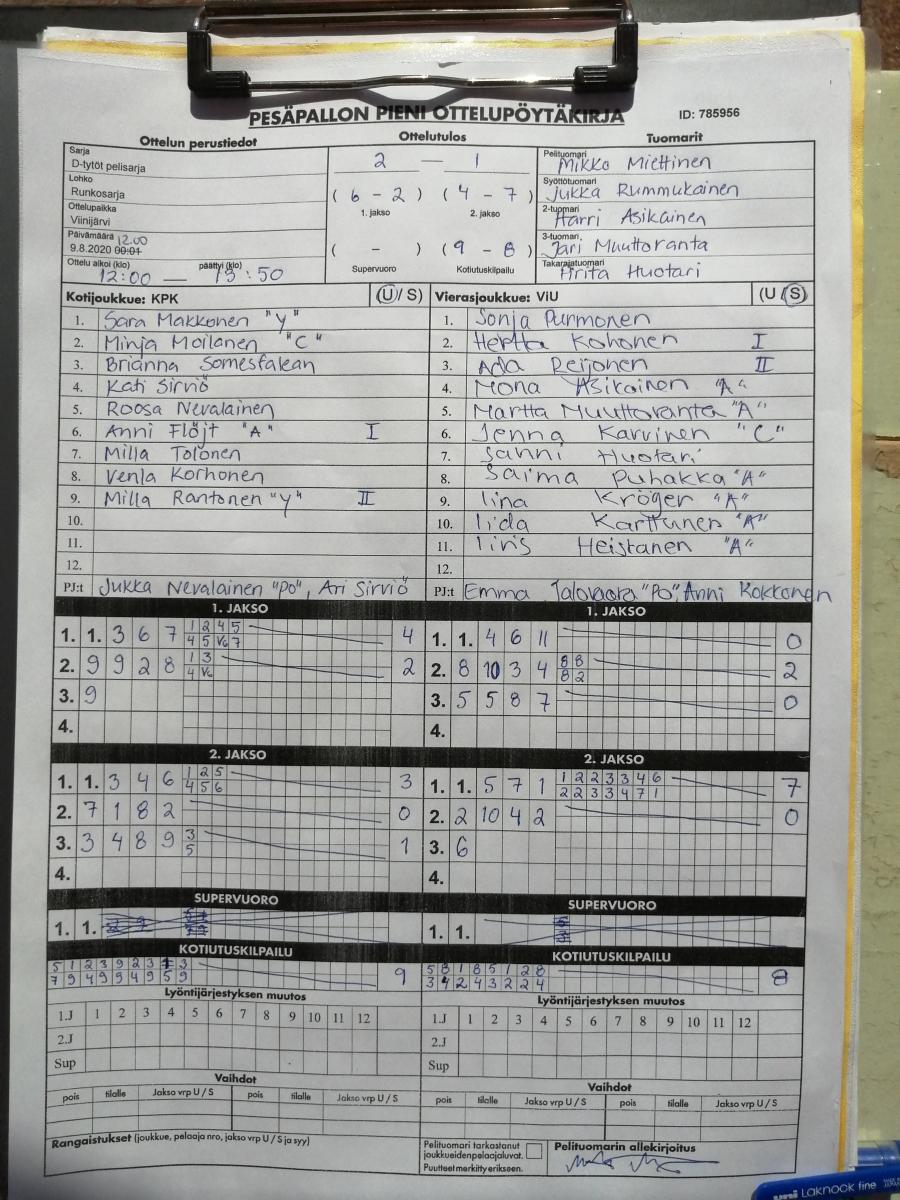 PESÄPALLON PIENI OTTELUPÖYTÄKIRJA ID: 785956
Ottelun perustiedot Ottelutulos Tuomarit
Sarja
D-tytöt pelisarja
Lohko
Runkosarja
Ottelupaikka
Viinijärvi
Päivämäärä 12.00
9.8.2020 00:01
Ottelu alkoi (klo) päättyi (klo)
12:00 — 13:50
2 — 1
( 6 - 2 ) ( 4 - 7 )
1. jakso 2. jakso
( - ) ( 9 - 8 )
Supervuoro Kotiutuskilpailu
Pelituomari
Mikko Miettinen
Syöttötuomari
Jukka Rummukainen
2-tuomari
Harri Asikainen
3-tuomari
Jari Muuttoranta
Takarajatuomari
Arita Huotari
Kotijoukkue: KPK (U / S)
1. Sara Makkonen "Y"
2. Minja Moilanen "C"
3. Brianna Somesfalean
4. Kati Sirviö
5. Roosa Nevalainen
6. Anni Flöjt "A" I
7. Milla Tolonen
8. Venla Korhonen
9. Milla Rantonen "Y" II
10.
11.
12.
PJ:t Jukka Nevalainen "PO", Ari Sirviö
Vierasjoukkue: ViU (U / S)
1. Sonja Purmonen
2. Hertta Kohonen I
3. Ada Reijonen II
4. Mona Asikainen "A"
5. Martta Muuttoranta "A"
6. Jenna Karvinen "C"
7. Sanni Huotari
8. Saima Puhakka "A"
9. Iina Kröger "A"
10. Iida Karttunen "A"
11. Iiris Heistanen "A"
12.
PJ:t Emma Jalovaara "PO", Anni Kokkonen
1. JAKSO
1. 1. 3 6 7 1 2 4 5 4
4 5 V6 7
2. 9 9 2 8 1 3 2
4 V6
3. 9
4.
1. JAKSO
1. 1. 4 6 11 0
2. 8 10 3 4 8 8 2
8 2
3. 5 5 8 7 0
4.
2. JAKSO
1. 1. 3 4 6 1 2 5 3
4 5 6
2. 7 1 8 2 0
3. 3 4 8 9 3 1
5
4.
2. JAKSO
1. 1. 5 7 1 1 2 2 3 3 4 6 7
2 2 3 3 4 7 1
2. 2 10 4 2 0
3. 6
4.
SUPERVUORO
1. 1.
SUPERVUORO
1. 1.
KOTIUTUSKILPAILU
5 1 2 3 9 2 3 1 3 9
7 9 4 9 9 4 9 5 9
KOTIUTUSKILPAILU
5 8 1 8 5 1 2 8 8
3 4 2 4 3 2 2 4
Lyöntijärjestyksen muutos
1.J 1 2 3 4 5 6 7 8 9 10 11 12
2.J
Sup
Lyöntijärjestyksen muutos
1.J 1 2 3 4 5 6 7 8 9 10 11 12
2.J
Sup
Vaihdot
pois tilalle Jakso vrp U / S pois tilalle Jakso vrp U / S
Vaihdot
pois tilalle Jakso vrp U / S pois tilalle Jakso vrp U / S
Rangaistukset (joukkue, pelaaja nro, jakso vrp U / S ja syy)
Pelituomari tarkastanut
joukkueidenpelaajaluvat.
Puutteet merkitty erikseen.
Pelituomarin allekirjoitus
uni LAKNOCK fine